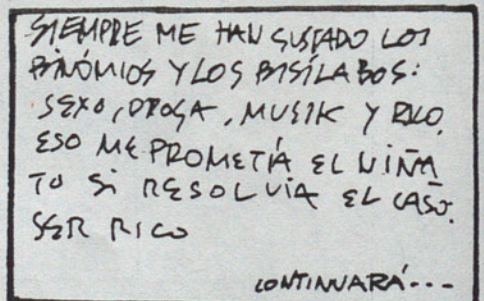 SIEMPRE ME HAN GUSTADO LOS
BINÓMIOS Y LOS BISÍLABOS:
SEXO, DROGA, MUSIK Y RICO.
ESO ME PROMETÍA EL NIÑA
TO SI RESOLVÍA EL CASO.
SER RICO
CONTINUARÁ...